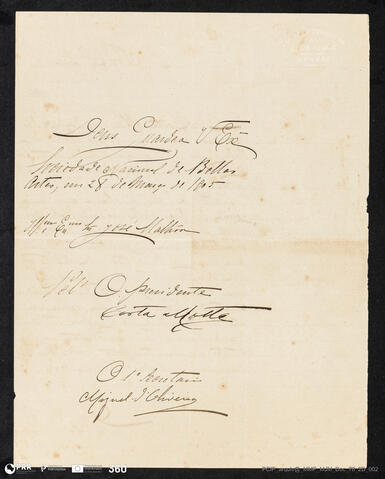 Deus Guarde a V. Exª
Sociedade Nacional de Bellas
Artes, em 28 de Março de 1905
Illmo Exmo Snr José Malhôa
Pelo O presidente
Costa Motta
O 1º Secretario
Miguel d'Oliveira
PRR
360